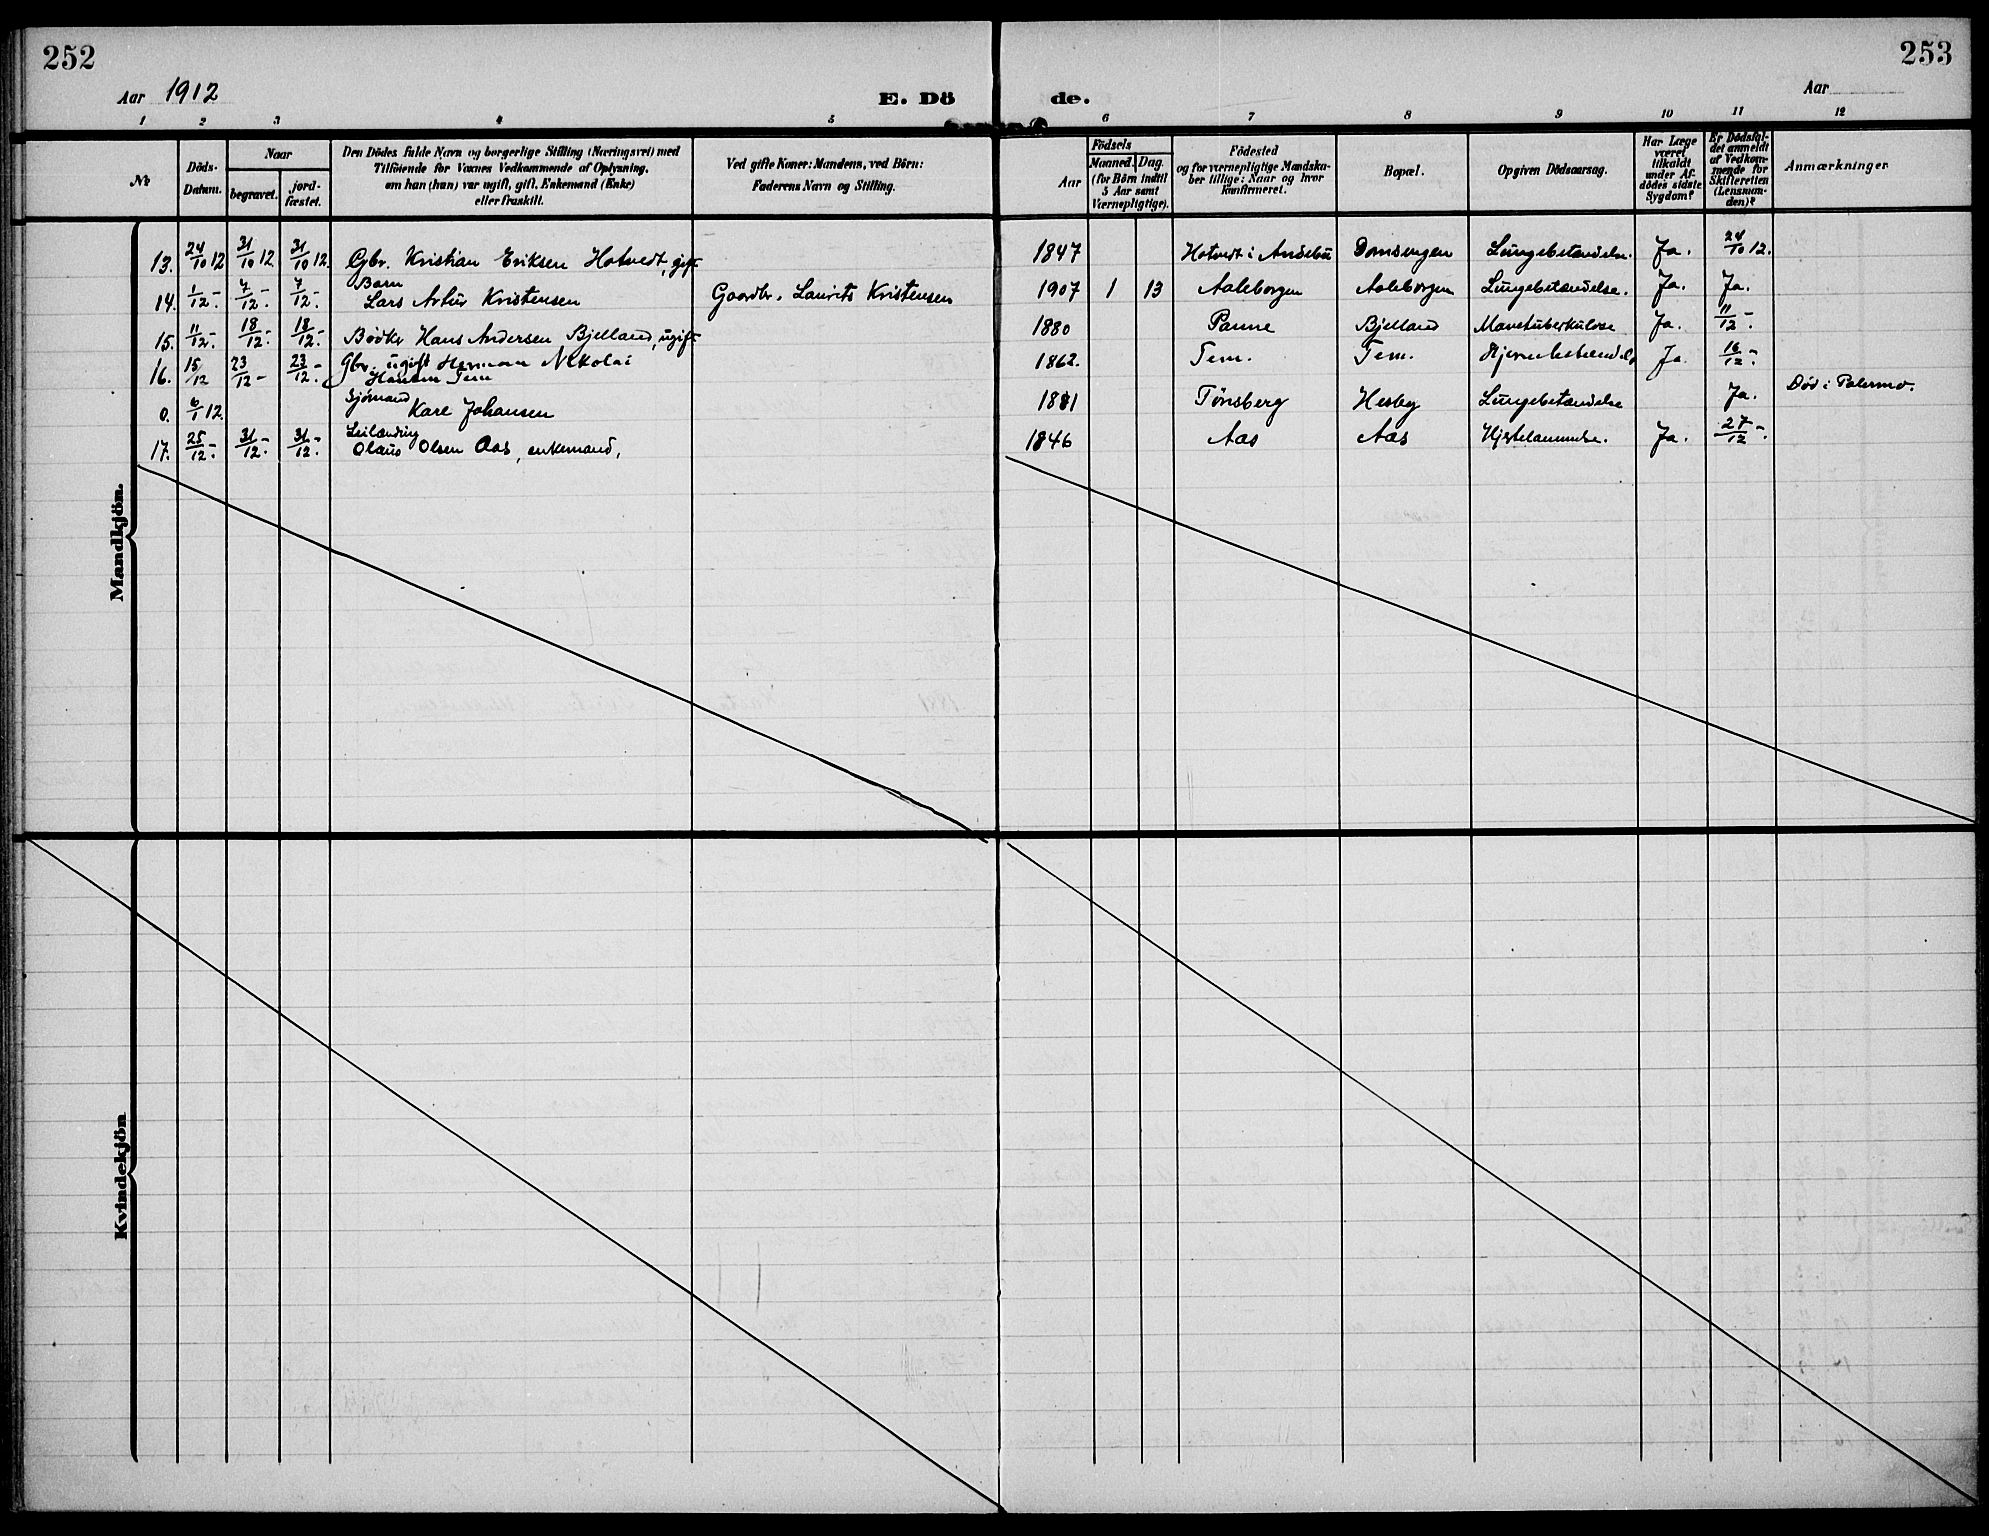 252
253
Aar 1912
E. Dö de.
Aar
1 2 3 4 5 6 7 8 9 10 11 12
№
Döds-
Datum.
Naar
begravet.
jord-
fæstet.
Den Dödes fulde Navn og borgerlige Stilling (Næringsvei) med
Tilföiende for Voxnes Vedkommende af Oplysning,
om han (hun) var ugift, gift, Enkemand (Enke)
eller fraskilt.
Ved gifte Koner: Mandens, ved Börn:
Faderens Navn og Stilling.
Födsels
Aar
Maaned. Dag.
(for Börn indtil
5 Aar samt
Værnepligtige).
Födested
og for værnepligtige Mandska-
ber tillige: Naar og hvor
konfirmeret.
Bopæl.
Opgiven Dödsaarsag.
Har Læge
været
tilkaldt
under Af-
dödes sidste
Sygdom?
Er Dödsfal-
det anmeldt
af Vedkom-
mende for
Skifteretten
(Lensman-
den)?
Anmærkninger
13. 24/10 12 31/10 12. 31/10 12. Gbr. Kristian Eriksen Hotvedt, gift 1847 Hotvedt i Andebu Domsengen Lungebetændelse. Ja. 24/10 12.
Barn
14. 1/12 - 7/12 - 7/12 - Lars Artur Kristensen Gaardbr. Laurits Kristensen 1907 1 13 Aaleborgen Aaleborgen Lungebetændelse. Ja. Ja.
15. 11/12 - 18/12 - 18/12 - Bødker Hans Andersen Bjelland, ugift 1880 Panne Bjelland Mavetuberkulose Ja. 11/12 -
16. 15/12 23/12 - 23/12 - Gbr. ugift Herman Nikolai 1862. Tem. Tem. Hjernebetændelse Ja. 16/12 -
Hansen Tem
Sjømand
0. 6/1 12. Kare Johansen 1881 Tönsberg Hesby Lungebetændelse Ja. Död i Palermo.
Leilænding
17. 25/12 - 31/12 - 31/12 - Olaus Olsen Aas, enkemand, 1846 Aas Aas Hjertelammelse. Ja. 27/12 -
Mandkjön.
Kvindekjön